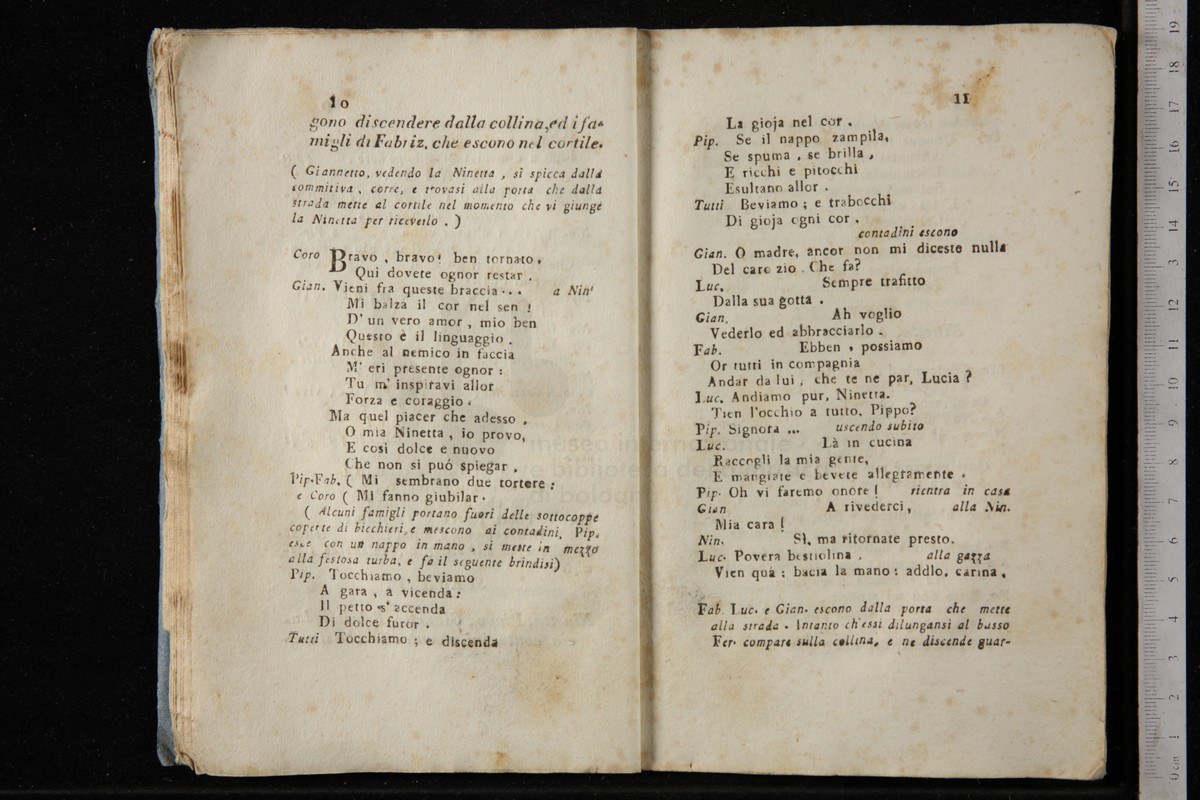 10
gono discendere dalla collina, ed i fa-
migli di Fabriz. che escono nel cortile.
( Giannetto, vedendo la Ninetta , si spicca dalla
commitiva , corre, e trovasi alla porta che dalla
strada mette al cortile nel momento che vi giunge
la Ninetta per riceverlo . )
Coro Bravo , bravo! ben tornato.
Qui dovete ognor restar .
Gian. Vieni fra queste braccia ... a Nin'
Mi balza il cor nel sen !
D' un vero amor , mio ben
Questo è il linguaggio .
Anche al nemico in faccia
M' eri presente ognor :
Tu m' inspiravi allor
Forza e coraggio .
Ma quel piacer che adesso ,
O mia Ninetta , io provo,
E così dolce e nuovo
Che non si puó spiegar .
Pip.Fab. ( Mi sembrano due tortere :
e Coro ( Mi fanno giubilar .
( Alcuni famigli portano fuori delle sottocoppe
coperte di bicchieri, e mescono ai contadini, Pip.
esce con un nappo in mano , si mette in mezzo
alla festosa turba, e fa il seguente brindisi)
Pip. Tocchiamo , beviamo
A gara , a vicenda :
Il petto s' accenda
Di dolce furor .
Tutti Tocchiamo ; e discenda
11
La gioja nel cor .
Pip. Se il nappo zampila,
Se spuma , se brilla ,
E ricchi e pitocchi
Esultano allor .
Tutti Beviamo ; e trabocchi
Di gioja ogni cor .
contadini escono
Gian. O madre, ancor non mi diceste nulla
Del caro zio . Che fa?
Luc. Sempre trafitto
Dalla sua gotta .
Gian. Ah voglio
Vederlo ed abbracciarlo .
Fab. Ebben , possiamo
Or tutti in compagnia
Andar da lui , che te ne par, Lucia ?
Luc. Andiamo pur, Ninetta.
Tien l'occhio a tutto, Pippo?
Pip. Signora ... uscendo subito
Luc. Là in cucina
Raccogli la mia gente,
E mangiate e bevete allegramente .
Pip. Oh vi faremo onore ! rientra in casa
Gian A rivederci , alla Nin.
Mia cara !
Nin. Sì, ma ritornate presto.
Luc. Povera bestiolina , alla gazza
Vien quà ; bacia la mano : addlo, carina ,
Fab. Luc. e Gian. escono dalla porta che mette
alla strada . Intanto ch'essi dilungansi al basso
Fer. compare sulla collina, e ne discende guar-